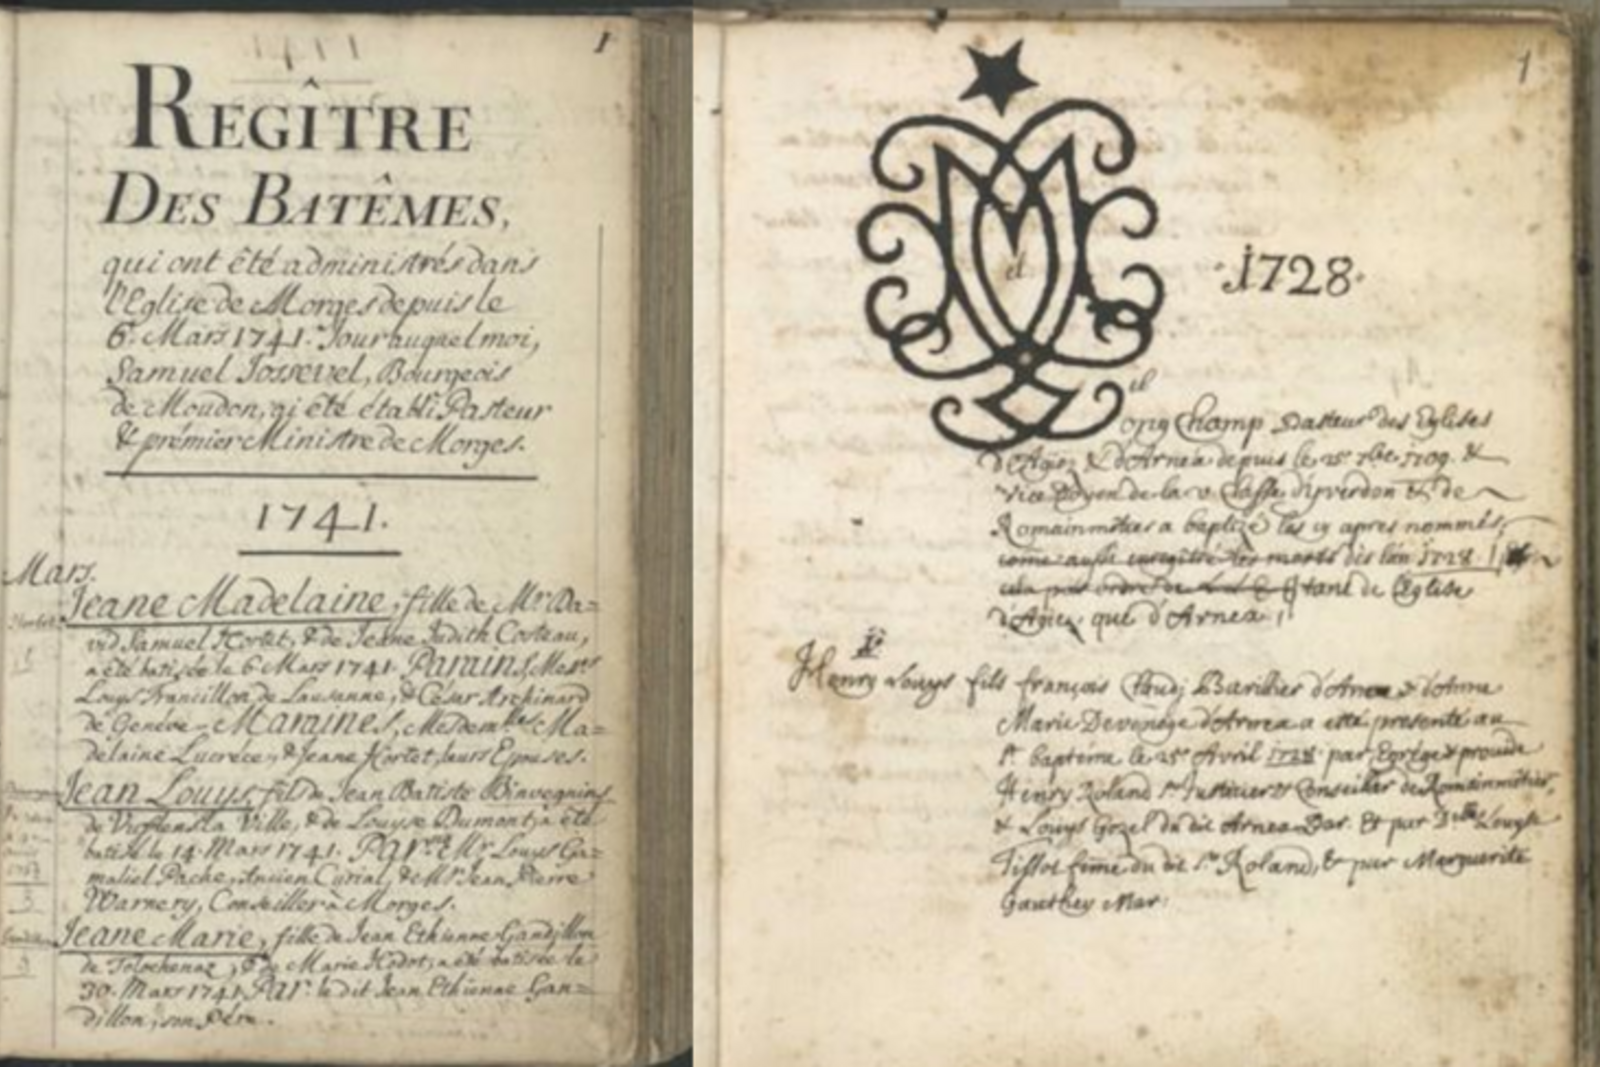 1
REGÎTRE
DES BATÊMES,
qui ont êté administrés dans
l'Eglise de Morges depuis le
6e. Mars 1741. Jour auquel moi,
Samuel Jossevel, Bourgeois
de Moudon, ai êté établi Pasteur
& prémier Ministre de Morges.
1741.
Mars.
Jeane Madelaine, fille de Mr. Da=
vid Samuel Hortet, & de Jeane Judith Costeau,
a êté batisée le 6e Mars 1741. Parains, Mess.rs
Louys Francillon de Lausanne, & César Archinard
de Genève - Maraines, Mesdem.lles Ma=
delaine Lucréce, & Jeane Hortet, leurs Epouses.
Jean Louys, fils de Jean Batiste
de Vufflens la Ville, & de Louyse Dumont, a êté
batisé le 14. Mars 1741. Par. Mr. Louys Ga=
maliel Pache, Ancien Curial, & Mr. Jean Pierre
Warnery, Conseiller à Morges.
Jeane Marie, fille de Jean Ethienne Gandillon
de Tolochenaz, & de Marie Hodot, a êté batisée le
30. Mars 1741. Par. le dit Jean Ethienne Gan=
dillon, son Pére.
1
et
1728
Champ Pasteur des Eglises
d'Agiez & d'Arnex depuis le 15e 7bre 1709. &
vice Doyen de la v. Classe d'Yverdon & de
Romainmôtier a baptizé les cy apres nommés,
come aussi enregîtré les morts dès l'an 1728
cela par ordre de tant de l'Eglise
d'Agiez que d'Arnex.
1
Henry Louys fils françois Claudj Barillier d'Arnex & d'Anne
Marie Devenoge d'Arnex a etté presenté au
St. baptême le 25e Avril 1728 par Egrége & proude
Henry Roland Sr. Justicier & Conseiller de Romainmôtier,
& Louys Gozel du dit Arnex Par. Et par Dlle Louyse
Tissot feme du dit Sr. Roland, & par Marguerite
Gauthey Mar.